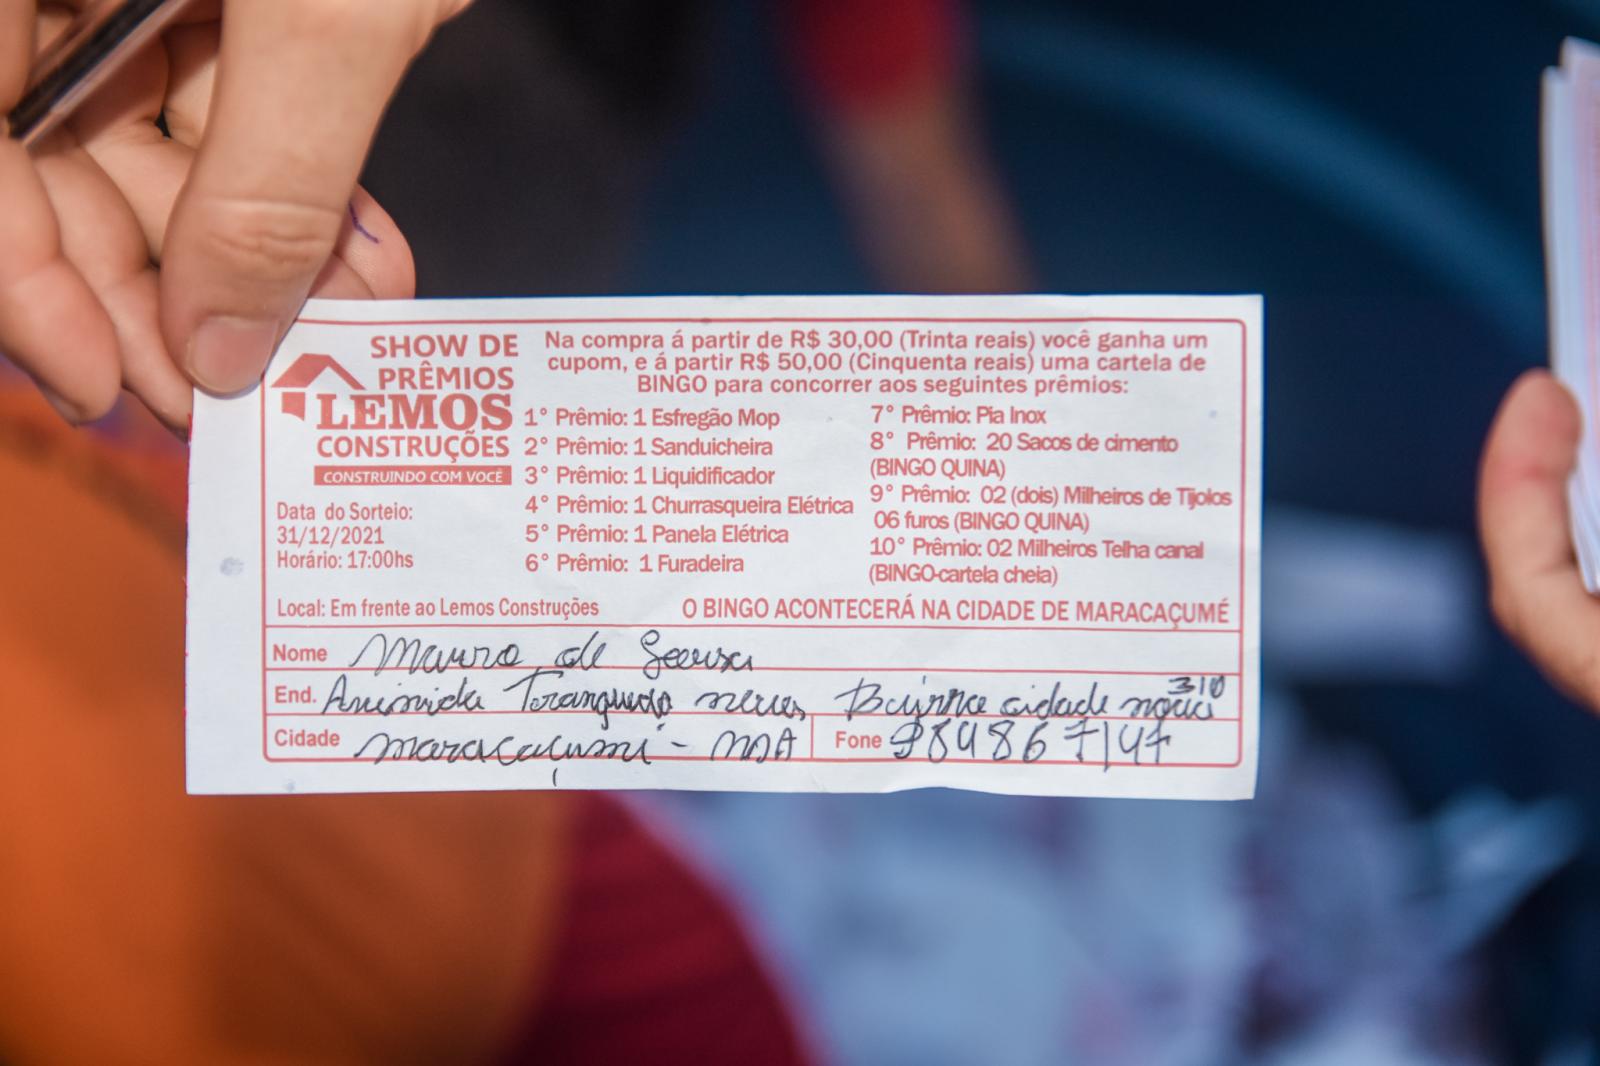 SHOW DE
PRÊMIOS
LEMOS
CONSTRUÇÕES
CONSTRUINDO COM VOCÊ
Data do Sorteio:
31/12/2021
Horário: 17:00hs
Na compra á partir de R$ 30,00 (Trinta reais) você ganha um
cupom, e á partir R$ 50,00 (Cinquenta reais) uma cartela de
BINGO para concorrer aos seguintes prêmios:
1° Prêmio: 1 Esfregão Mop
2° Prêmio: 1 Sanduicheira
3° Prêmio: 1 Liquidificador
4° Prêmio: 1 Churrasqueira Elétrica
5° Prêmio: 1 Panela Elétrica
6° Prêmio: 1 Furadeira
7° Prêmio: Pia Inox
8° Prêmio: 20 Sacos de cimento
(BINGO QUINA)
9° Prêmio: 02 (dois) Milheiros de Tijolos
06 furos (BINGO QUINA)
10° Prêmio: 02 Milheiros Telha canal
(BINGO-cartela cheia)
Local: Em frente ao Lemos Construções O BINGO ACONTECERÁ NA CIDADE DE MARACAÇUMÉ
Nome Mauro de
End. cidade 310
Cidade maracaçumé - MA Fone 984867147